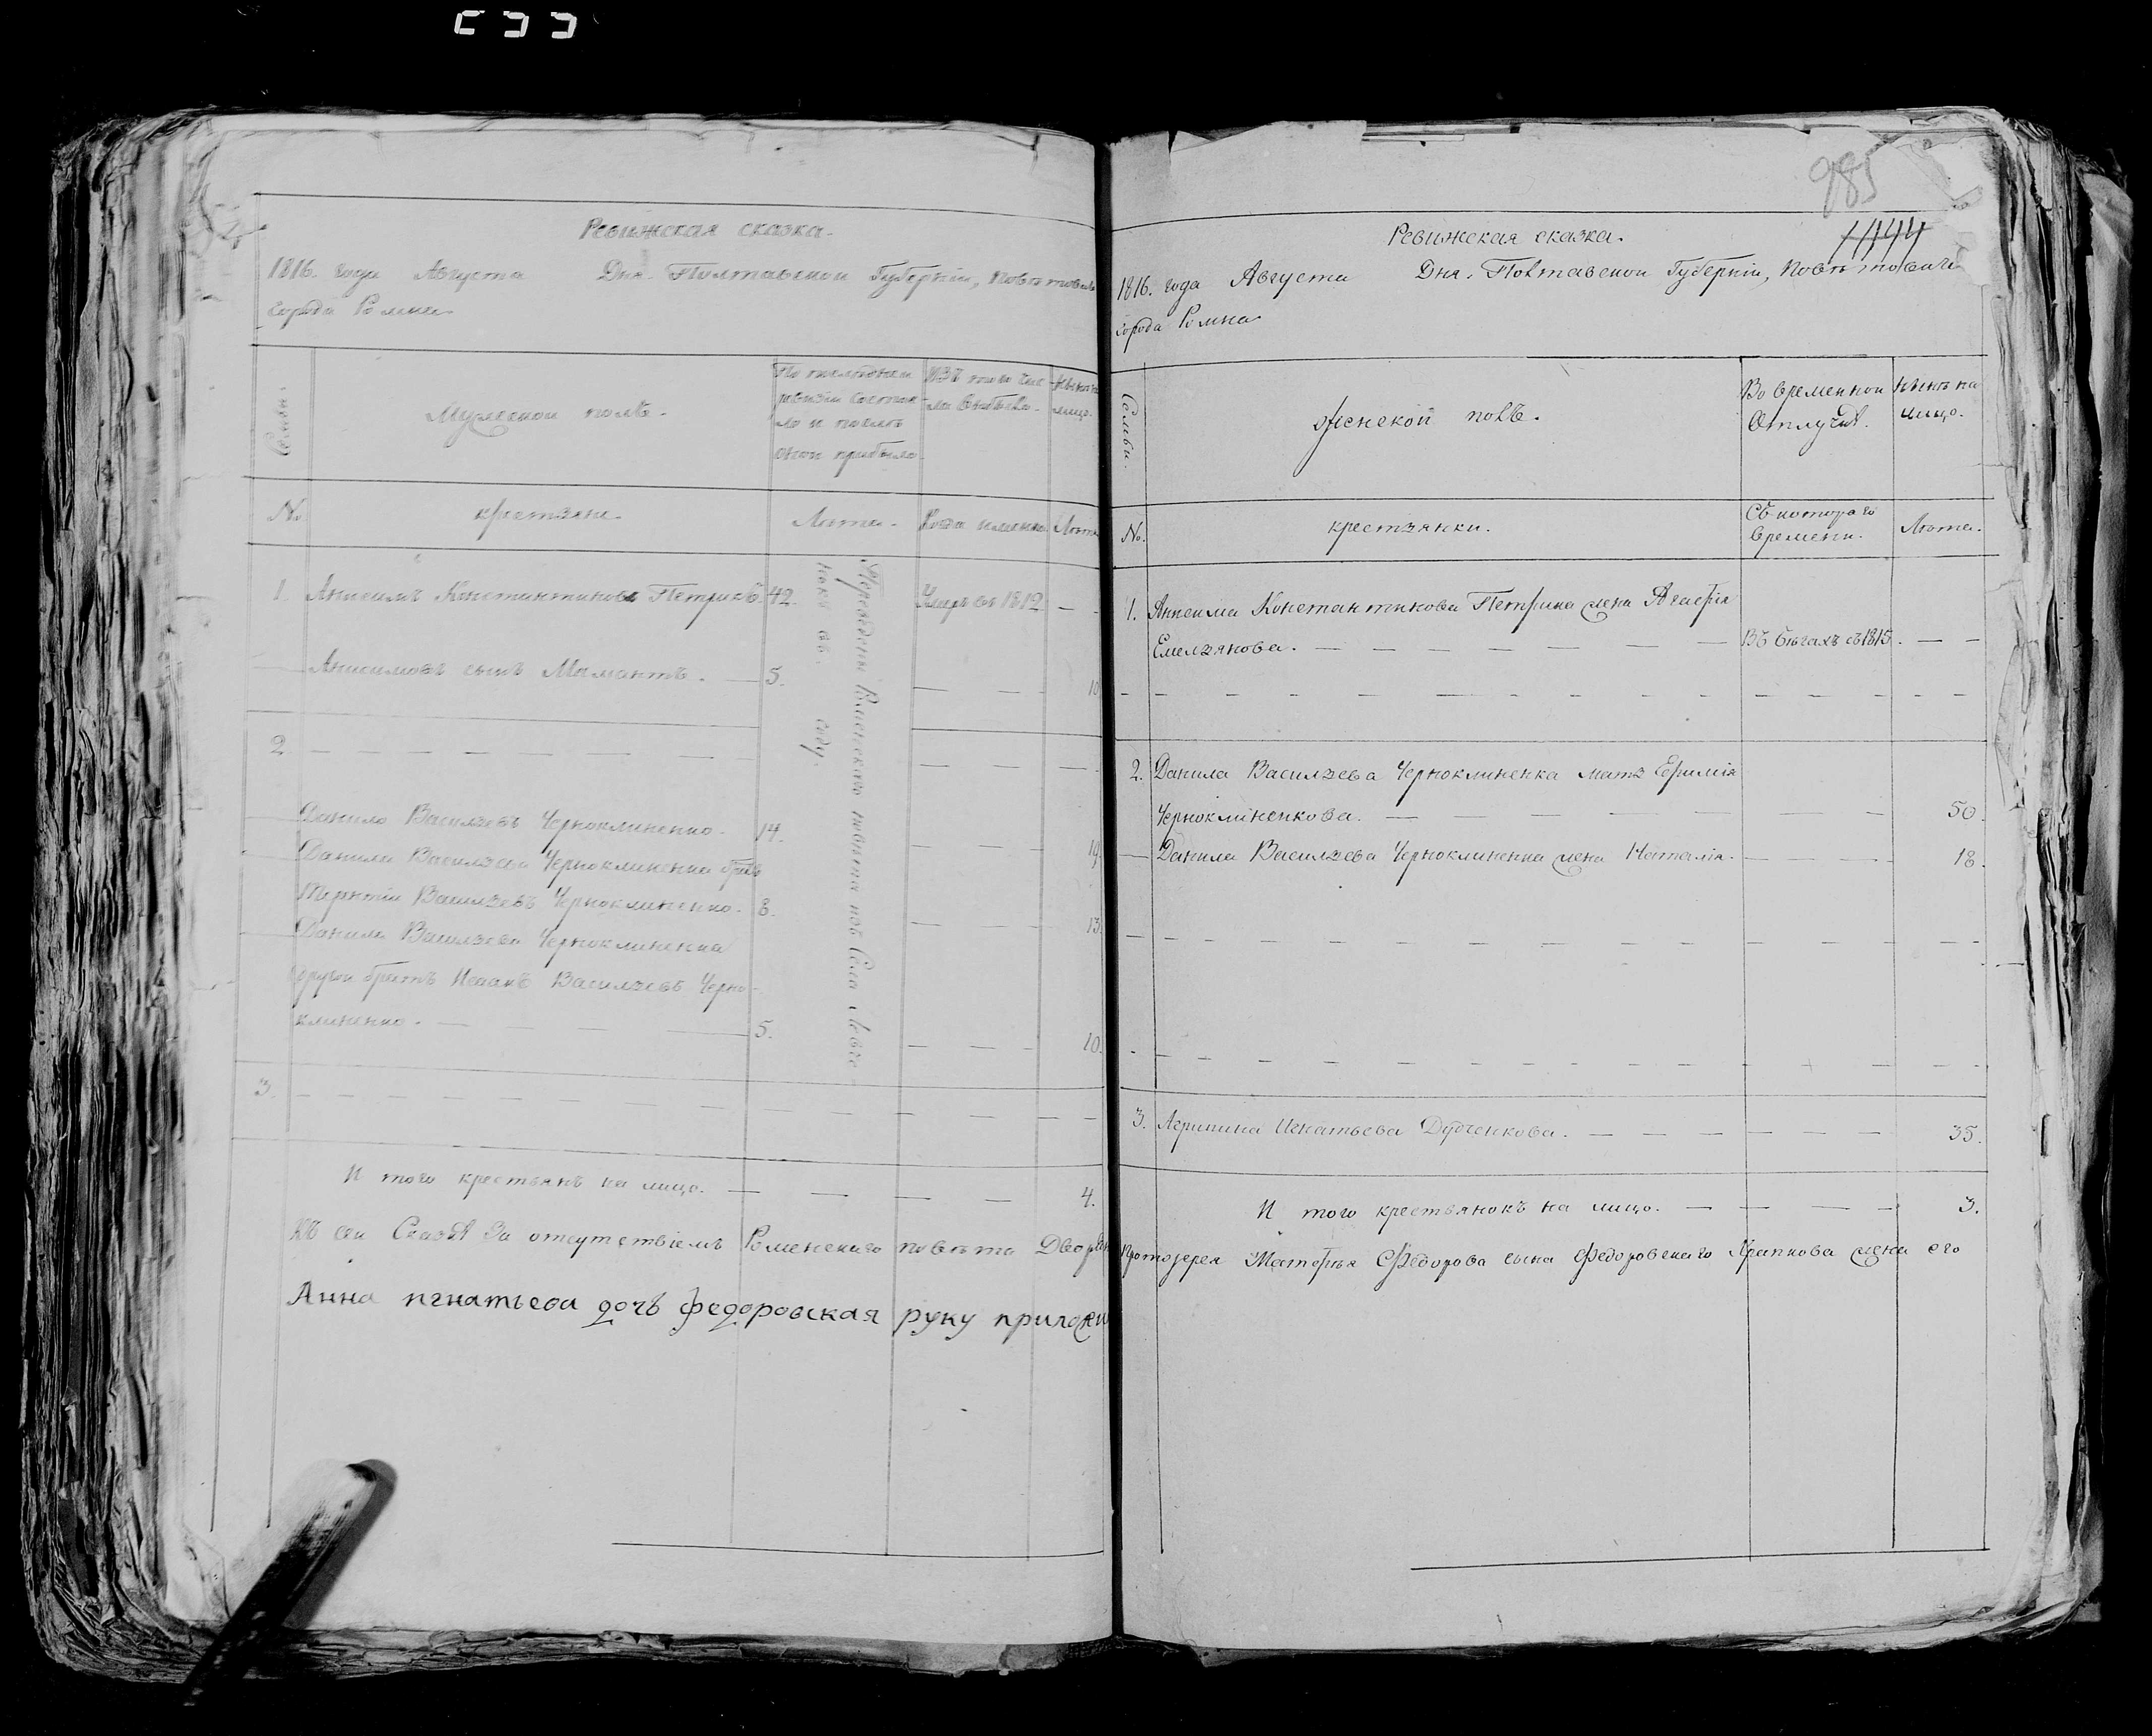 Ревижская сказка.
1816. года Августа Дня. Полтавской Губерніи, Повѣтовыи
города Ромна
Семьи.
Мужеской полъ.
По последней
ревизіи состоя-
ло и послѣ
оной прибыло.
Изъ того чис
ла выбыло.
Нынѣ на
лицо.
№
крестьяне
Лѣта.
Когда именно
Лѣта
1. Анисимъ Константиновъ Петрикъ. 42. Умеръ въ 1812 — -
Анисимовъ сынъ Мамантъ. — 5. — — 10
Переведены Роменского повѣта изъ Села
году.
2 — — — — — — —
Данило Васильевъ Черноклиненко. 14. — — 19
Данила Васильева Черноклиненка братъ
Терентій Васильевъ Черноклиненко. 8. — — 13.
Данила Васильева Черноклиненка
другой братъ Исаакъ Васильевъ Черно-
клиненко. — — — 5. — — 10.
3. — — — — — — —
И того крестьянъ на лицо. — — — — 4.
Къ сей Сказкѣ За отсутствіемъ Роменскаго повѣта
Анна игнатьева дочь федоровская руку приложи
985
1144
Ревижская сказка.
1816. года Августа Дня. Полтавской Губерніи, Повѣтовыи
города Ромна
Семьи.
Женской полъ.
Во временной
Отлучкѣ.
Нынѣ на
лицо.
№.
крестьянки.
Съ котораго
времени.
Лѣта.
1. Анисима Константинова Петрика жена Агафія
Емельянова. — — — — — — — Въ бѣгахъ съ 1815. — —
2. Данила Васильева Черноклиненка мать Ефимія
Черноклиненкова. — — — — — — 50.
— Данила Васильева Черноклиненка жена Наталія. — — — 18.
3. Агрипина Игнатьева Дубченкова. — — — — — — 35.
И того крестьянокъ на лицо. — — — 3.
Протоіерея Федорова сына Федоровскаго жена его